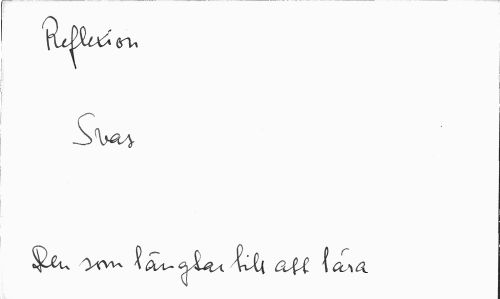 Reflexion
Svar
Den som längtar till att lära